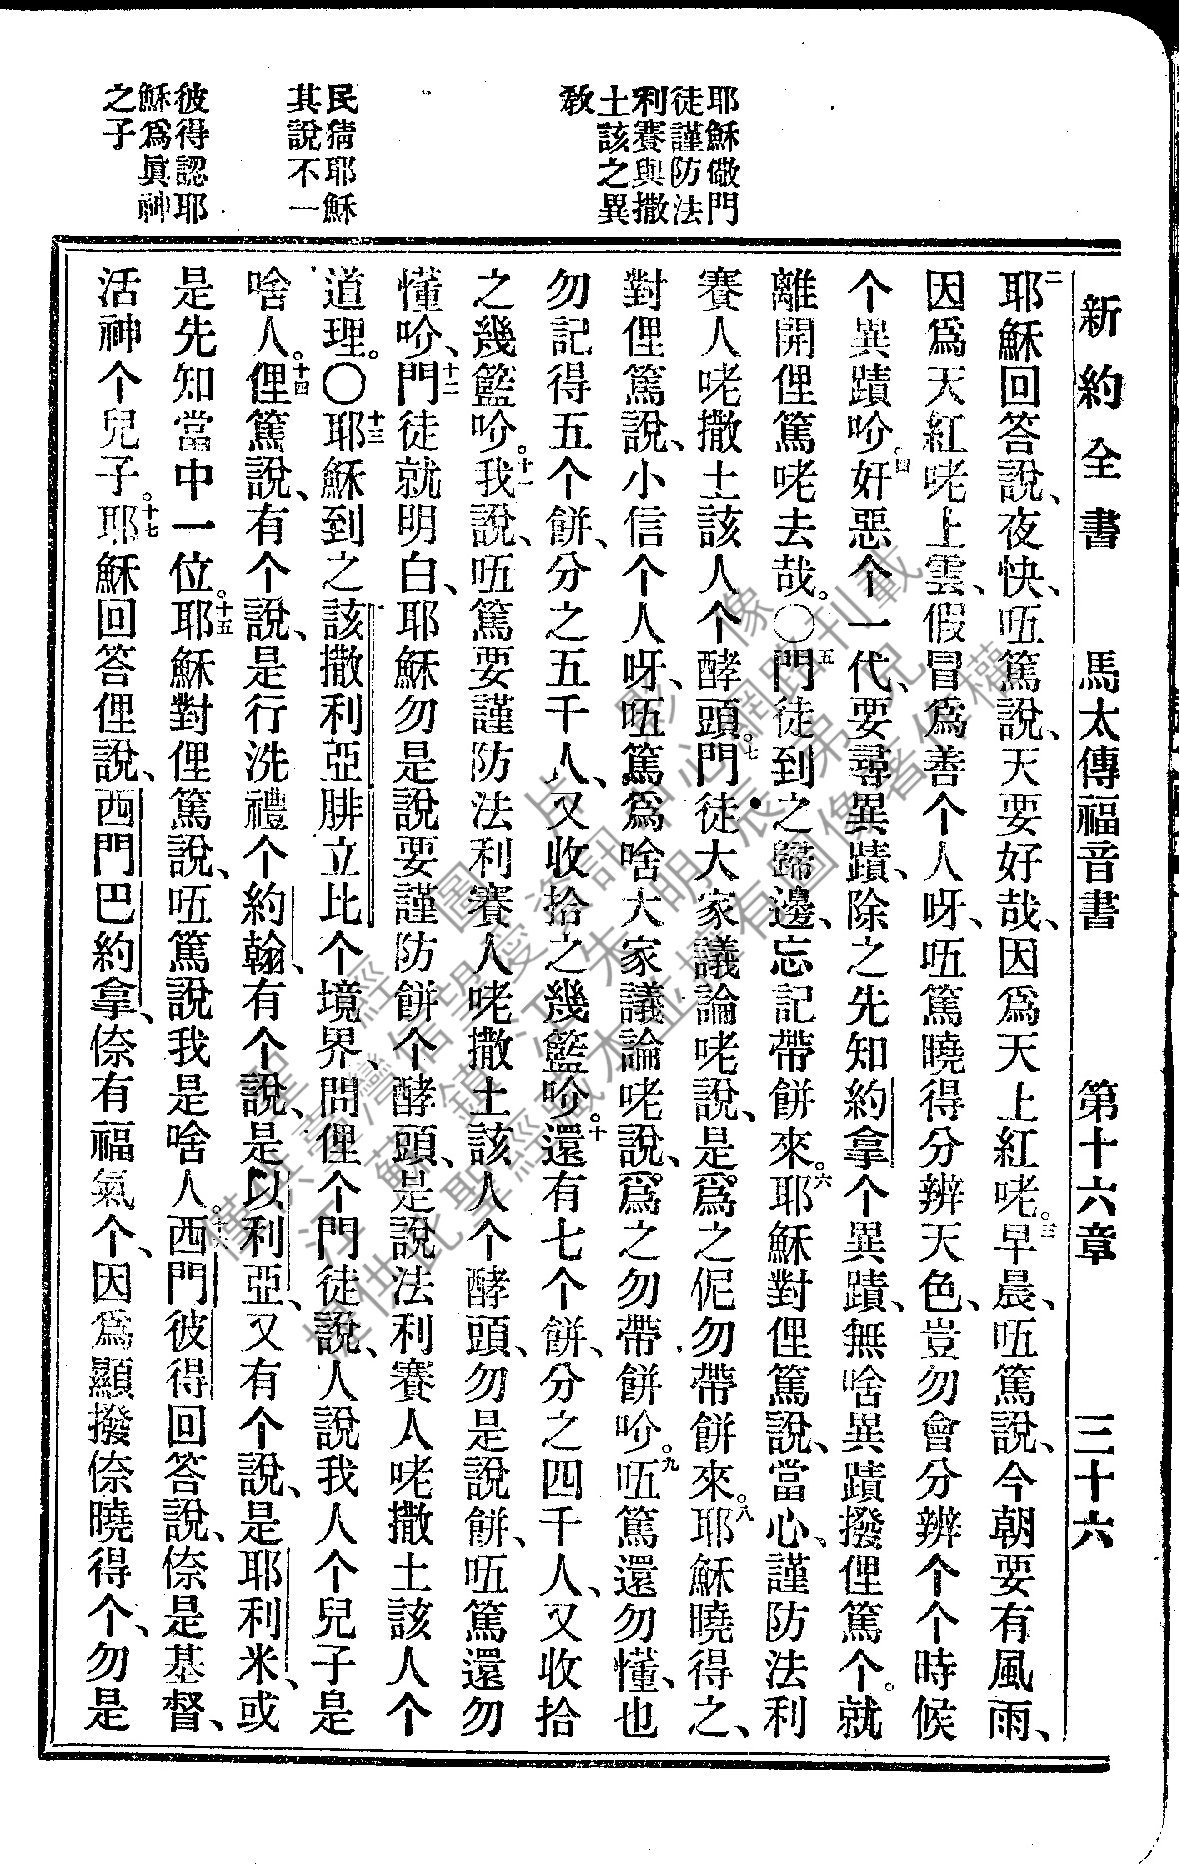 新約全書 馬太傳福音書 第十六章 三十六
耶穌儆門
徒謹防法
利賽與撒
土該之異
教
民猜耶穌
其說不一
彼得認耶
穌爲眞神
之子
二耶穌回答說、夜快、㕶篤說、天要好哉、因爲天上紅咾。三早晨、㕶篤說、今朝要有風雨、
因爲天紅咾上雲、假冒爲善个人呀、㕶篤曉得分辨天色、豈勿會分辨个个時候
个異蹟吤。四奸惡个一代、要尋異蹟、除之先知約拿个異蹟、無啥異蹟撥俚篤个。就
離開俚篤咾去哉。〇五門徒到之歸邊、忘記帶餅來。六耶穌對俚篤說、當心、謹防法利
賽人咾撒土該人个酵頭。七門徒大家議論咾說、是爲之伲勿帶餅來。八耶穌曉得之、
對俚篤說、小信个人呀、㕶篤爲啥大家議論咾說、爲之勿帶餅吤。九㕶篤還勿懂、也
勿記得五个餅、分之五千人、又收拾之幾籃吤。十還有七个餅、分之四千人、又收拾
之幾籃吤。十一我說、㕶篤要謹防法利賽人咾撒土該人个酵頭、勿是說餅、㕶篤還勿
懂吤、十二門徒就明白、耶穌勿是說要謹防餅个酵頭、是說法利賽人咾撒土該人个
道理。〇十三耶穌到之該撒利亞腓立比个境界、問俚个門徒說、人說我人个兒子是
啥人。十四俚篤說、有个說、是行洗禮个約翰、有个說、是以利亞、又有个說、是耶利米、或
是先知當中一位。十五耶穌對俚篤說、㕶篤說我是啥人。十六西門彼得回答說、倷是基督、
活神个兒子。十七耶穌回答俚說、西門巴約拿、倷有福氣个、因爲顯撥倷曉得个、勿是